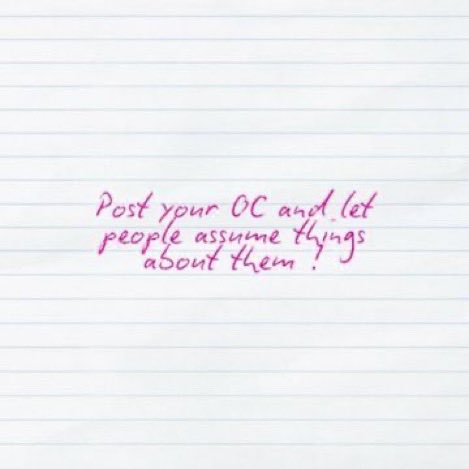 Post your OC and let
people assume things
about them !